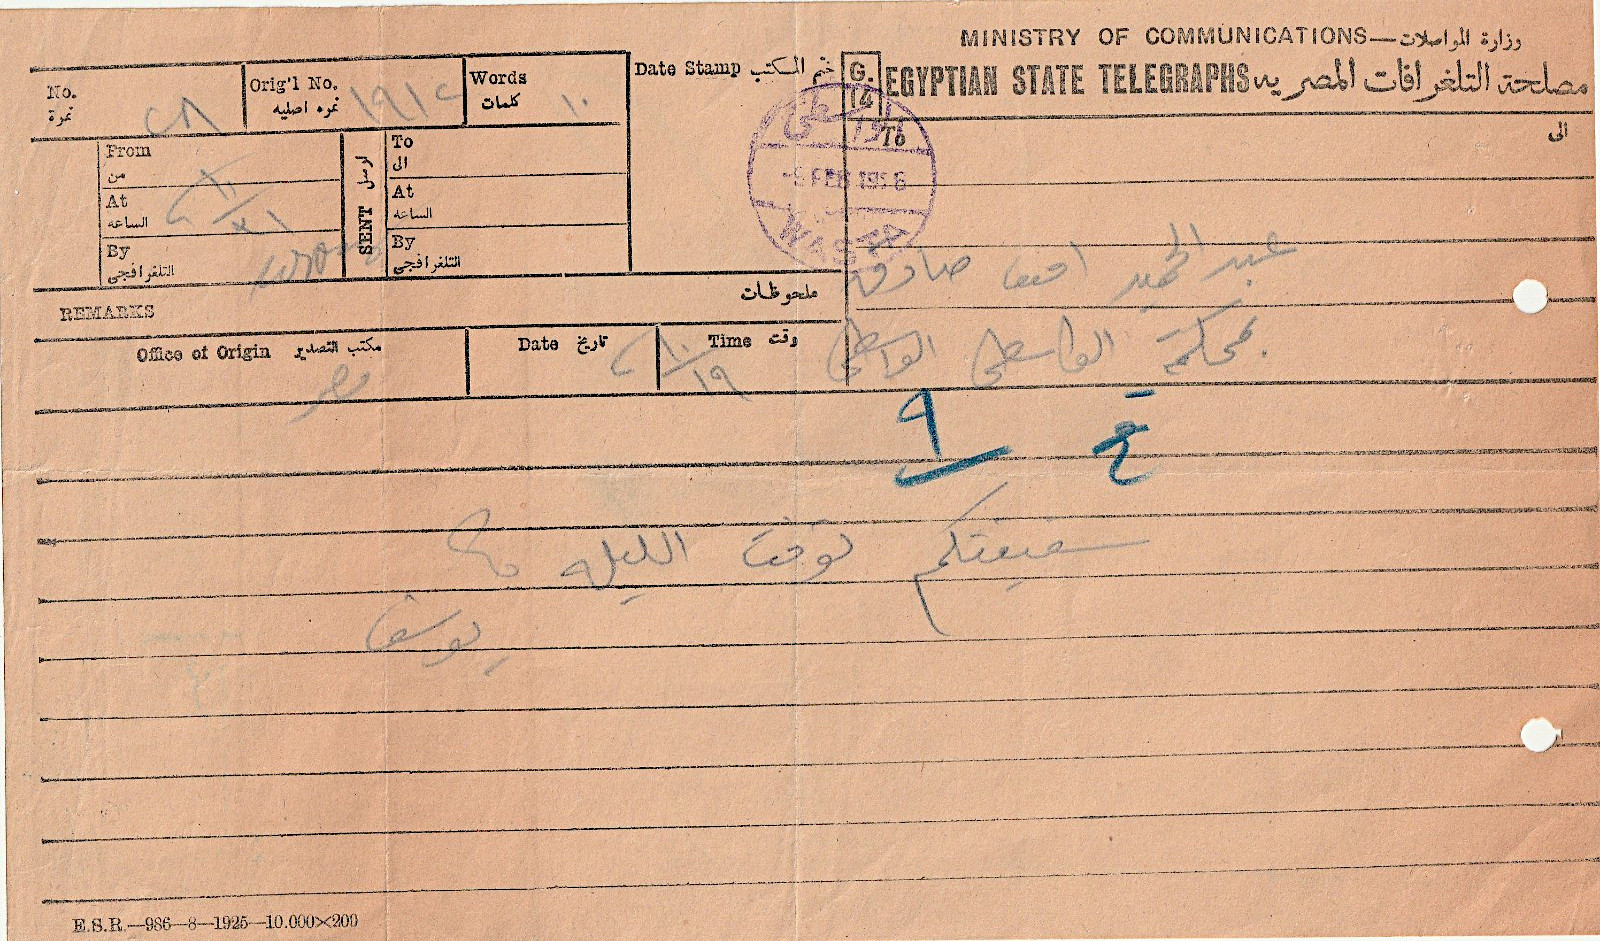 MINISTRY OF COMMUNICATIONS—وزارة المواصلات
G. 14
EGYPTIAN STATE TELEGRAPHS مصلحة التلغرافات المصريه
No. نمرة ٢٨
Orig'l No. نمره اصليه
Words كلمات ١٠
Date Stamp ختم المكتب
-9 FEB 1926
WASTA
To الى
From من
At الساعه
By التلغرافجى
SENT ارسل
To الى
At الساعه
By التلغرافجى
عبد الحميد افندى صادق
محكمة الواسطى الواسطى
REMARKS ملحوظات
Office of Origin مكتب التصدير مصر
Date تاريخ
Time وقت
٩
شقيقتكم توفت الليله
يوسف
E.S.R.—986—8—1925—10.000×200